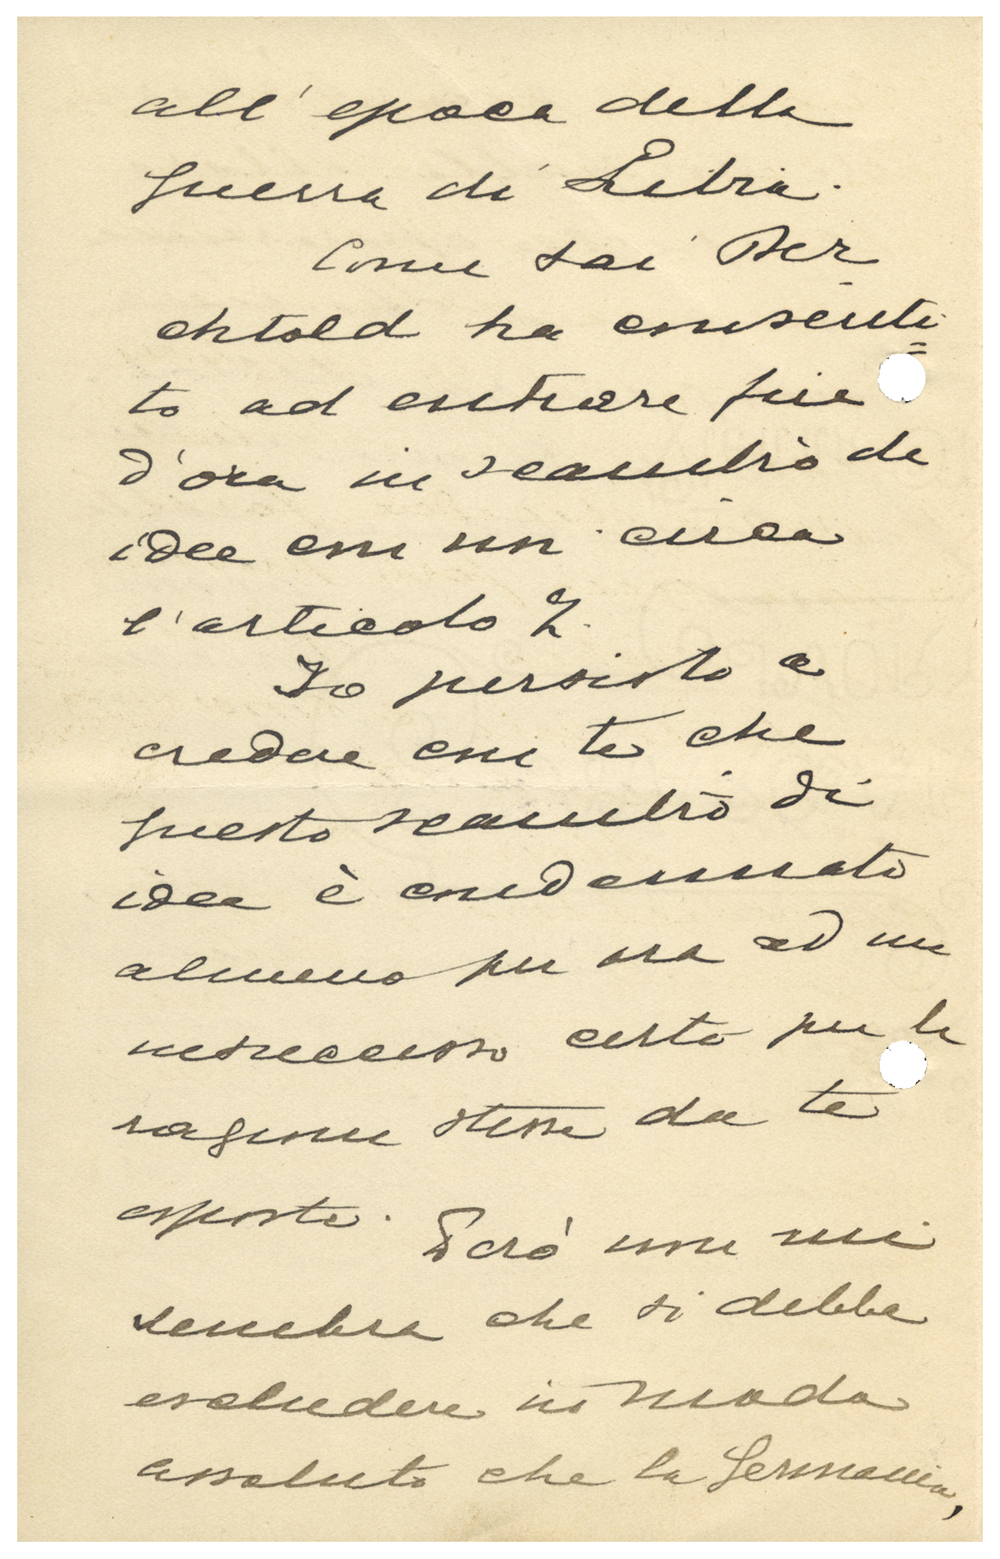 all'epoca della
guerra di Libia.
Come sai Ber
chtold ha consenti=
to ad entrare fin
d'ora in scambio di
idee con noi circa
l'articolo 7.
Io persisto a
credere con te che
questo scambio di
idee è condannato
almeno per ora ad un
insuccesso certo per le
ragioni stesse da te
esposte. Però non mi
sembra che si debba
escludere in modo
assoluto che la Germania,